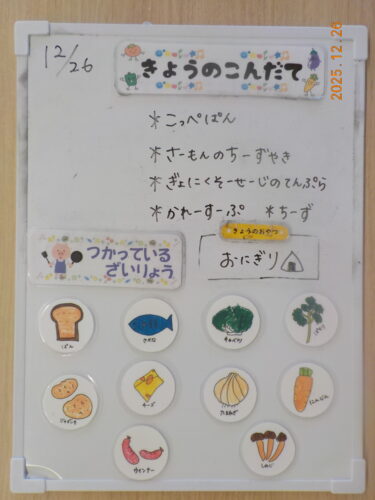 12/26
きょうのこんだて
2025.12.26
*こっぺぱん
*さーもんのちーずやき
*ぎょにくそーせーじのてんぷら
*かれーすーぷ *ちーず
きょうのおやつ
つかっている
ざいりょう
おにぎり
ぱん
さかな
キャベツ
パセリ
ジャガイモ
チーズ
たまねぎ
にんじん
ウインナー
しめじ